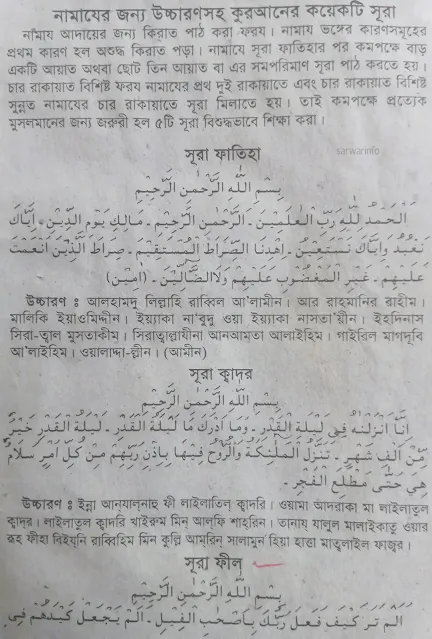 নামাযের জন্য উচ্চারণসহ কুরআনের কয়েকটি সূরা
নামায আদায়ের জন্য কিরাত পাঠ করা ফরয। নামায ভঙ্গের কারণসমূহের
প্রথম কারণ হল অশুদ্ধ কিরাত পড়া। নামাযে সূরা ফাতিহার পর কমপক্ষে বড়
একটি আয়াত অথবা ছোট তিন আয়াত বা এর সমপরিমাণ সূরা পাঠ করতে হয়।
চার রাকায়াত বিশিষ্ট ফরয নামাযের প্রথ দুই রাকায়াতে এবং চার রাকায়াত বিশিষ্ট
সুন্নত নামাযের চার রাকায়াতে সূরা মিলাতে হয়। তাই কমপক্ষে প্রত্যেক
মুসলমানের জন্য জরুরী হল ৫টি সূরা বিশুদ্ধভাবে শিক্ষা করা।
sarwarinfo
সূরা ফাতিহা
بِسْمِ اللَّهِ الرَّحْمَنِ الرَّحِيْمِ
اَلْحَمْدُ لِلَّهِ رَبِّ الْعَلَمِيْنَ - الرَّحْمَنِ الرَّحِيْمِ - مَالِكِ يَوْمِ الدِّيْنِ - اِيَّاكَ
نَعْبُدُ وَاِيَّاكَ نَسْتَعِيْنُ - اِهْدِنَا الصِّرَاطَ الْمُسْتَقِيْمَ - صِرَاطَ الَّذِيْنَ اَنْعَمْتَ
عَلَيْهِمْ - غَيْرِ الْمَغْضُوْبِ عَلَيْهِمْ وَلَا الضَّالِّيْنَ - (امين)
উচ্চারণ : আলহামদু লিল্লাহি রাব্বিল আ'লামীন। আর রাহমানির রাহীম।
মালিকি ইয়াওমিদ্দীন। ইয়্যাকা না'বুদু ওয়া ইয়্যাকা নাসতা'য়ীন। ইহদিনাস
সিরা-ত্বাল মুসতাকীম। সিরাত্বাল্লাযীনা আনআমতা আলাইহিম। গাইরিল মাগদূবি
আ'লাইহিম। ওয়ালাদ্দা-ল্লীন। (আমীন)
সূরা ক্বাদর
بِسْمِ اللَّهِ الرَّحْمَنِ الرَّحِيْمِ
اِنَّا اَنْزَلْنَهُ فِىْ لَيْلَةِ الْقَدْرِ - وَمَا اَدْرَكَ مَا لَيْلَةُ الْقَدْرِ - لَيْلَةُ الْقَدْرِ خَيْرٌ
مِّنْ اَلْفِ شَهْرٍ - تَنَزَّلُ الْمَلَئِكَةُ وَالرُّوْحُ فِيْهَا بِاِذْنِ رَبِّهِمْ مِنْ كُلِّ اَمْرٍ سَلَامٌ
هِىَ حَتَّى مَطْلَعِ الْفَجْرِ -
উচ্চারণ : ইন্না আনযালনাহু ফী লাইলাতিল ক্বাদরি। ওয়ামা আদরাকা মা লাইলাতুল
ক্বাদর। লাইলাতুল ক্বাদরি খাইরুম মিন্ আল্‌ফি শাহরিন। তানায্ যালুল মালাইকাতু ওয়ার
রূহু ফীহা বিইযনি রাব্বিহিম মিন কুল্লি আমরিন্ সালামুন হিয়া হাত্তা মাত্বলাইল ফাজর।
সূরা ফীল
بِسْمِ اللَّهِ الرَّحْمَنِ الرَّحِيْمِ
اَلَمْ تَرَ كَيْفَ فَعَلَ رَبُّكَ بِاَصْحَابِ الْفِيْلِ - اَلَمْ يَجْعَلْ كَيْدَهُمْ فِىْ